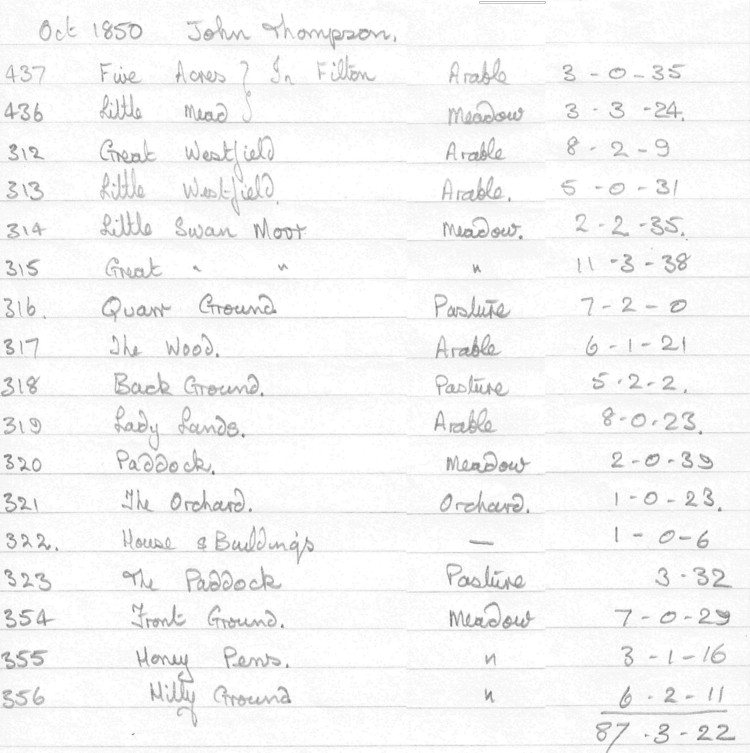 Oct 1850 John Thompson.
437 Five Acres } In Filton Arable 3 - 0 - 35
436 Little Mead } Meadow 3 - 3 - 24.
312 Great Westfield Arable 8 - 2 - 9
313 Little Westfield. Arable. 5 - 0 - 31
314 Little Swan Moor Meadow. 2 - 2 - 35.
315 Great " " " 11 - 3 - 38
316. Quarr Ground Pasture 7 - 2 - 0
317 The Wood. Arable 6 - 1 - 21
318 Back Ground. Pasture 5 - 2 - 2.
319 Lady Lands. Arable 8 - 0 - 23.
320 Paddock. Meadow 2 - 0 - 39
321 The Orchard. Orchard. 1 - 0 - 23.
322. House & Buildings — 1 - 0 - 6
323 The Paddock Pasture 3 - 32
354 Front Ground. Meadow 7 - 0 - 29
355 Honey Pens. " 3 - 1 - 16
356 Hilly Ground " 6 - 2 - 11
87 - 3 - 22